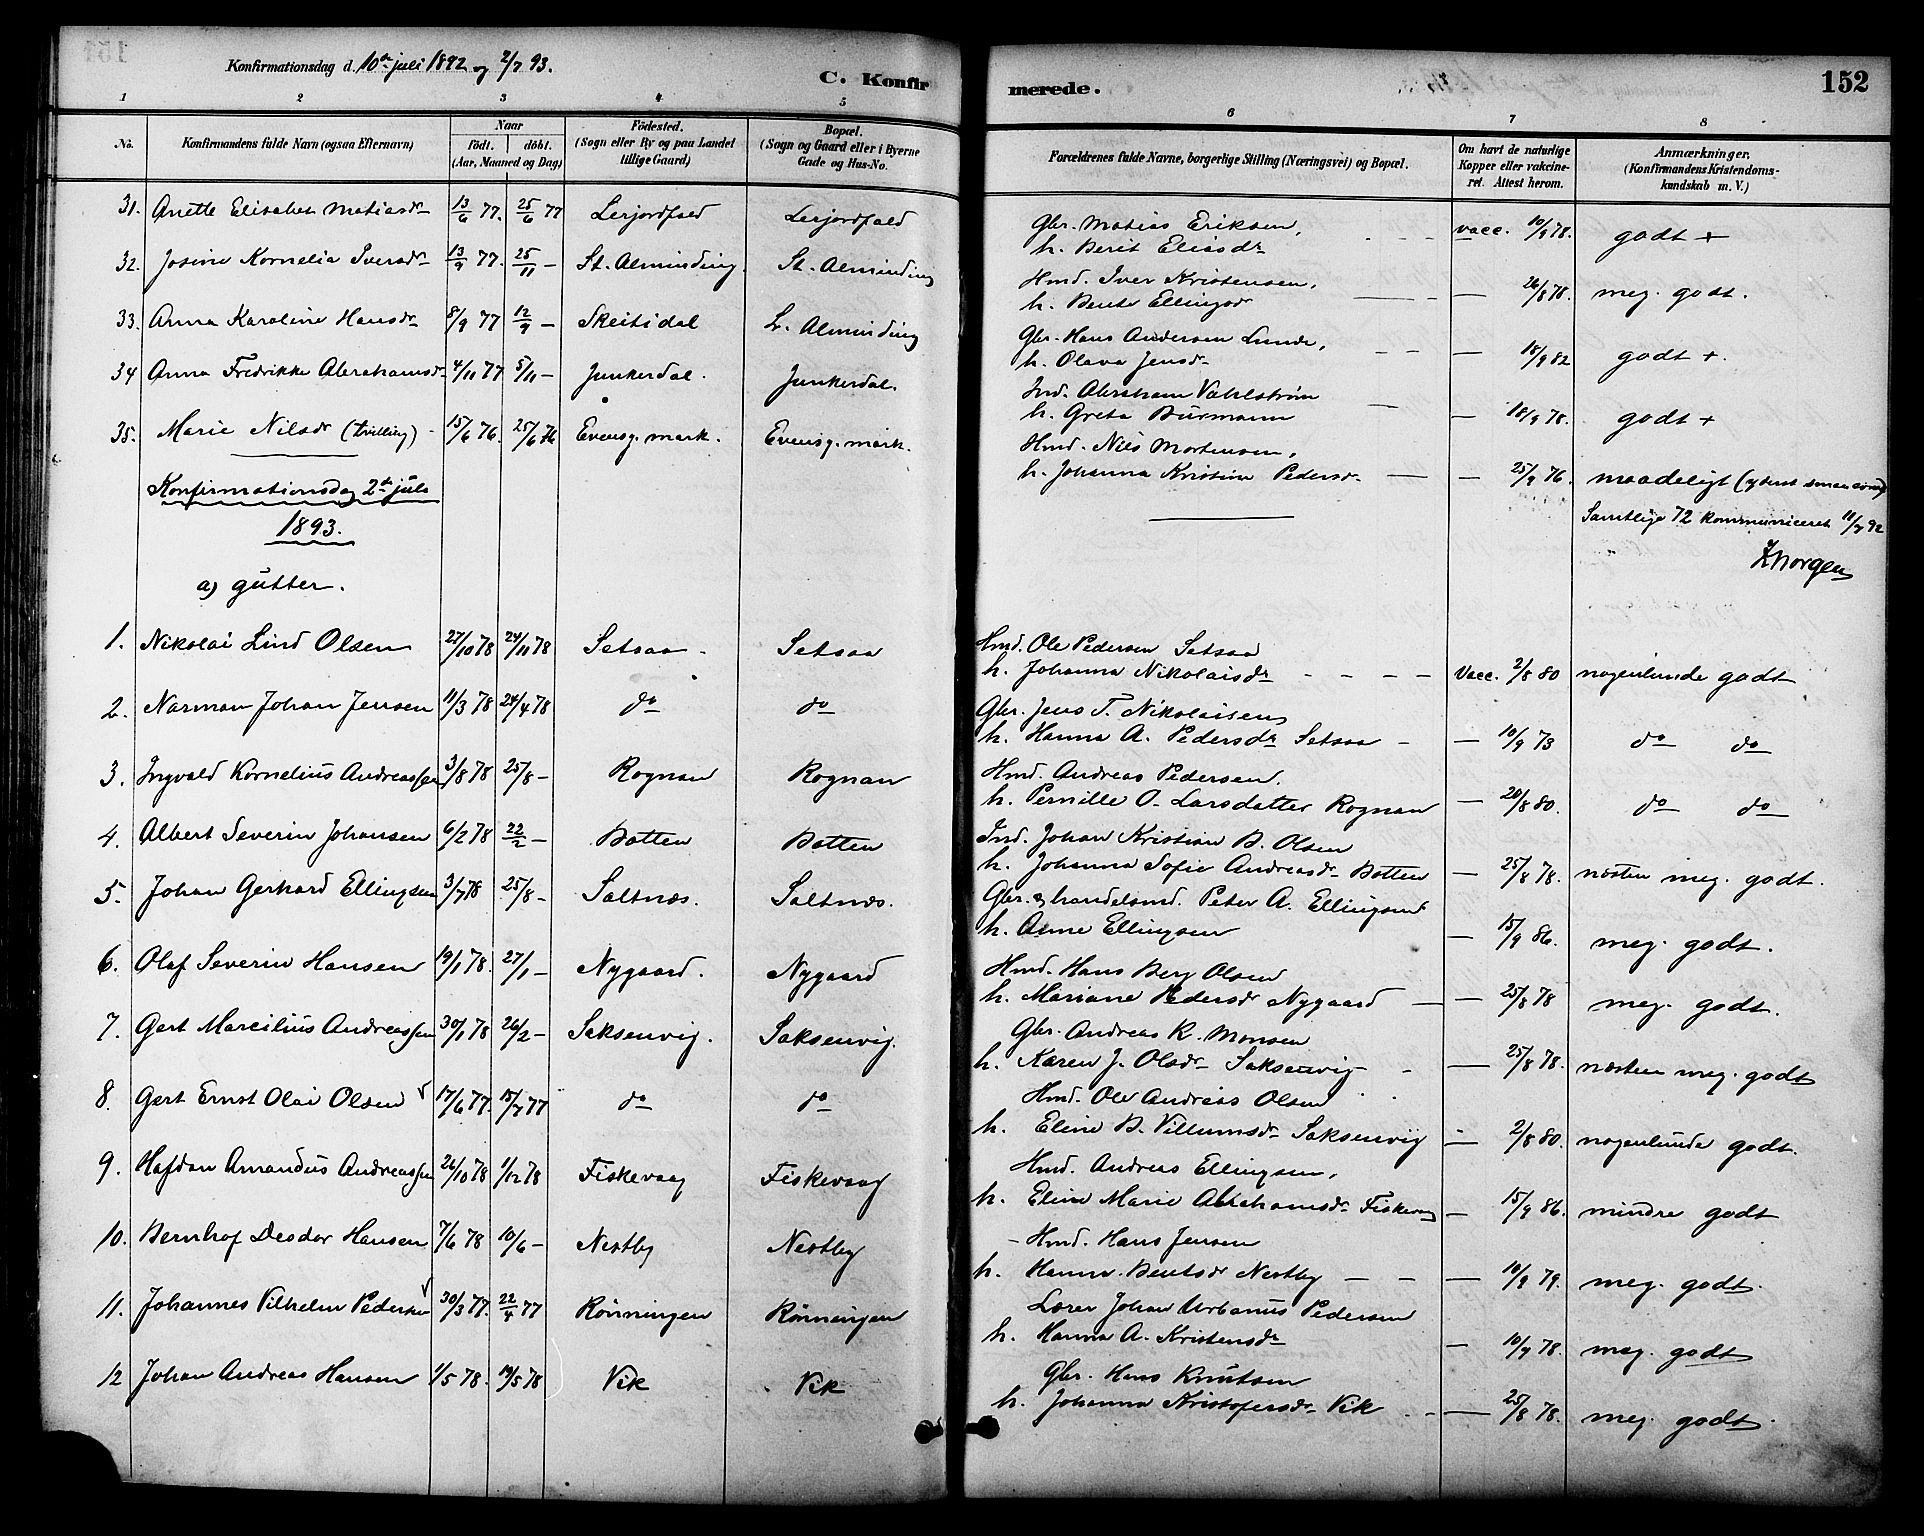 152
Konfirmationsdag d. 10de juli 1892 og 2/7 93.
C. Konfirmerede.
1 2 3 4 5 6 7 8
No.
Konfirmandens fulde Navn (ogsaa Efternavn)
Naar
födt. döbt.
(Aar, Maaned og Dag)
Födested.
(Sogn eller By og paa Landet
tillige Gaard)
Bopæl.
(Sogn og Gaard eller i Byerne
Gade og Hus-No.
Forældrenes fulde Navne, borgerlige Stilling (Næringsvei) og Bopæl.
Om havt de naturlige
Kopper eller vakcine-
ret. Attest herom.
Anmærkninger.
(Konfirmandens Kristendoms-
kundskab m. V.)
31. Anette Elisabet Matiasdr 13/6 77. 25/6 77 Lerjordfald Lerjordfald Gbr. Matias Eriksen,
h. Berit Eliasdr vacc. 10/9 78. godt +
32. Josine Kornelia Iversdr 13/9 77. 25/11 — St. Alminding. St. Alminding Hmd. Iver Kristensen,
h. Bente Ellingsdr — 26/8 78. meg. godt.
33. Anna Karoline Hansdr 8/9 77 12/9 — Skeitidal L. Alminding Gbr. Hans Andersen Lunde,
h. Olava Jensdr — 18/9 82 godt +.
34 Anna Fredrikke Abrahamsdr 4/11 77 5/11 — Junkerdal. Junkerdal. Ind. Abraham Vahlstrøm
h. Greta Burmann — 18/9 78. godt +
35. Marie Nilsdr (tvilling) 15/6 76. 25/6 76 Evensg. mark. Evensg. mark. Hmd. Nils Mortensen,
h. Johanna Kristine Pedersdr — 25/9 76. maadeligt (yderst
Konfirmationsdag 2de juli
1893.
Samtlige 72 kommuniceret 11/7 92
a) gutter.
1. Nikolai Lind Olsen 27/10 78 24/11 78 Setsaa Setsaa Hmd. Ole Pedersen Setsaa
h. Johanna Nikolaisdr Vacc. 2/8 80 nogenlunde godt
2. Narman Johan Jensen 11/3 78 24/4 78 do do Gbr. Jens T. Nikolaisen
h. Hanna A. Pedersdr Setsaa — 10/9 73 do do
3. Ingvald Kornelius Andreassen 3/8 78 25/8 — Rognan Rognan Hmd. Andreas Pedersen.
h. Pernille O. Larsdatter Rognan — 20/8 80. do do
4. Albert Severin Johansen 6/2 78 22/2 — Botten Botten Ind. Johan Kristian B. Olsen
h. Johanna Sofie Andreasdr Botten — 25/8 78. næsten meg. godt.
5. Johan Gerhard Ellingsen 3/7 78 25/8 — Saltnæs. Saltnæs. Gbr. & handelsmd. Peter A. Ellingsen
h. Anne Ellingsen — 15/9 86. meg. godt.
6. Olaf Severin Hansen 19/1 78. 27/1 — Nygaard. Nygaard Hmd. Hans Berg Olsen
h. Mariane Pedersdr Nygaard — 25/8 78 meg. godt.
7. Gert Marcilius Andreassen 30/1 78 26/2 — Saksenvig. Saksenvig. Gbr. Andreas K. Monsen
h. Karen J. Olsdr Saksenvig — 25/8 78. næsten meg. godt
8. Gert Ernst Olai Olsen 17/6 77. 15/7 77 do do Hmd. Ole Andreas Olsen
h. Eline B. Villumsdr Saksenvig — 2/8 80. nogenlunde godt.
9. Hafdan Amandus Andreassen 26/10 78 1/12 78 Fiskevaag Fiskevaag Hmd. Andreas Ellingsen,
h. Eline Marie Abrahamsdr Fiskevaag — 15/9 86. mindre godt
10. Bernhof Desdor Hansen 7/6 78 10/6 — Nestby Nestby Hmd. Hans Jensen
h. Hanna Bentsdr Nestby — 10/9 79. meg. godt.
11. Johannes Vilhelm Pedersen 30/3 77. 22/4 77 Rønningen Rønningen Lærer Johan Urbanus Pedersen
h. Hanna A. Kristensdr — 10/9 78. meg. godt
12 Johan Andreas Hansen 1/5 78. 19/5 78 Vik Vik Gbr. Hans Knutsen
h. Johanna Kristofersdr Vik — 25/8 78. meg. godt.